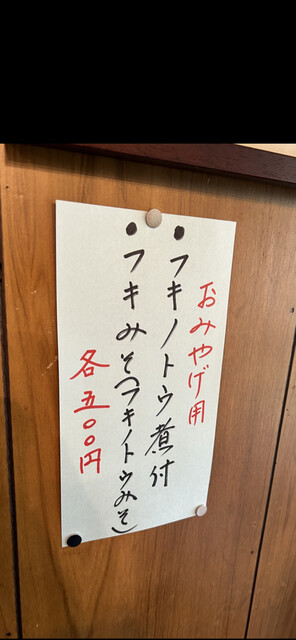 おみやげ用
・フキノトウ煮付
・フキみそ(フキノトウみそ)
各五〇〇円